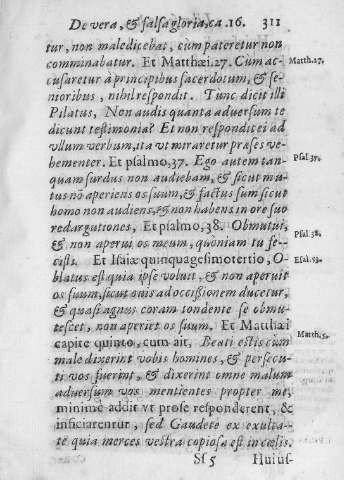 De vera, & falsa gloria, ca. 16. 311
tur, non maledicebat, cùm pateretur non
comminabatur. Et Matthæi.27. Cùm ac-
cusaretur à principibus sacerdotum, & se-
nioribus, nihil respondit. Tunc dicit illi
Pilatus, Non audis quanta aduersum te
dicunt testimonia? Et non respondit ei ad
vllum verbum, ita vt miraretur præses ve-
hementer. Et psalmo, 37. Ego autem tan-
quam surdus non audiebam, & sicut mu-
tus nõ aperiens os suum, & factus sum sicut
homo non audiens, & non habens in ore suo
redargutiones, Et psalmo, 38. Obmutui,
& non aperui os meum, quóniam tu fe-
cisti. Et Isaiæ quinquagesimotertio, O-
blatus est quia ipse voluit, & non aperuit
os suum, sicut ouis ad occisionem ducetur,
& quasi agnus coram tondente se obmu-
tescet, non aperiet os suum, Et Matthæi
capite quinto, cum ait, Beati estis cùm
male dixerint vobis homines, & persecu-
ti vos fuerint, & dixerint omne malum
aduersum vos mentientes propter me,
minimè addit vt prose responderent, &
inficiarentur, sed Gaudete ex exulta-
te quia merces vestra copiosa est in cœlis.
Sf 5 Huius-
Matth.27.
Psal.37.
Psal.38.
Esai.53.
Matth.5.